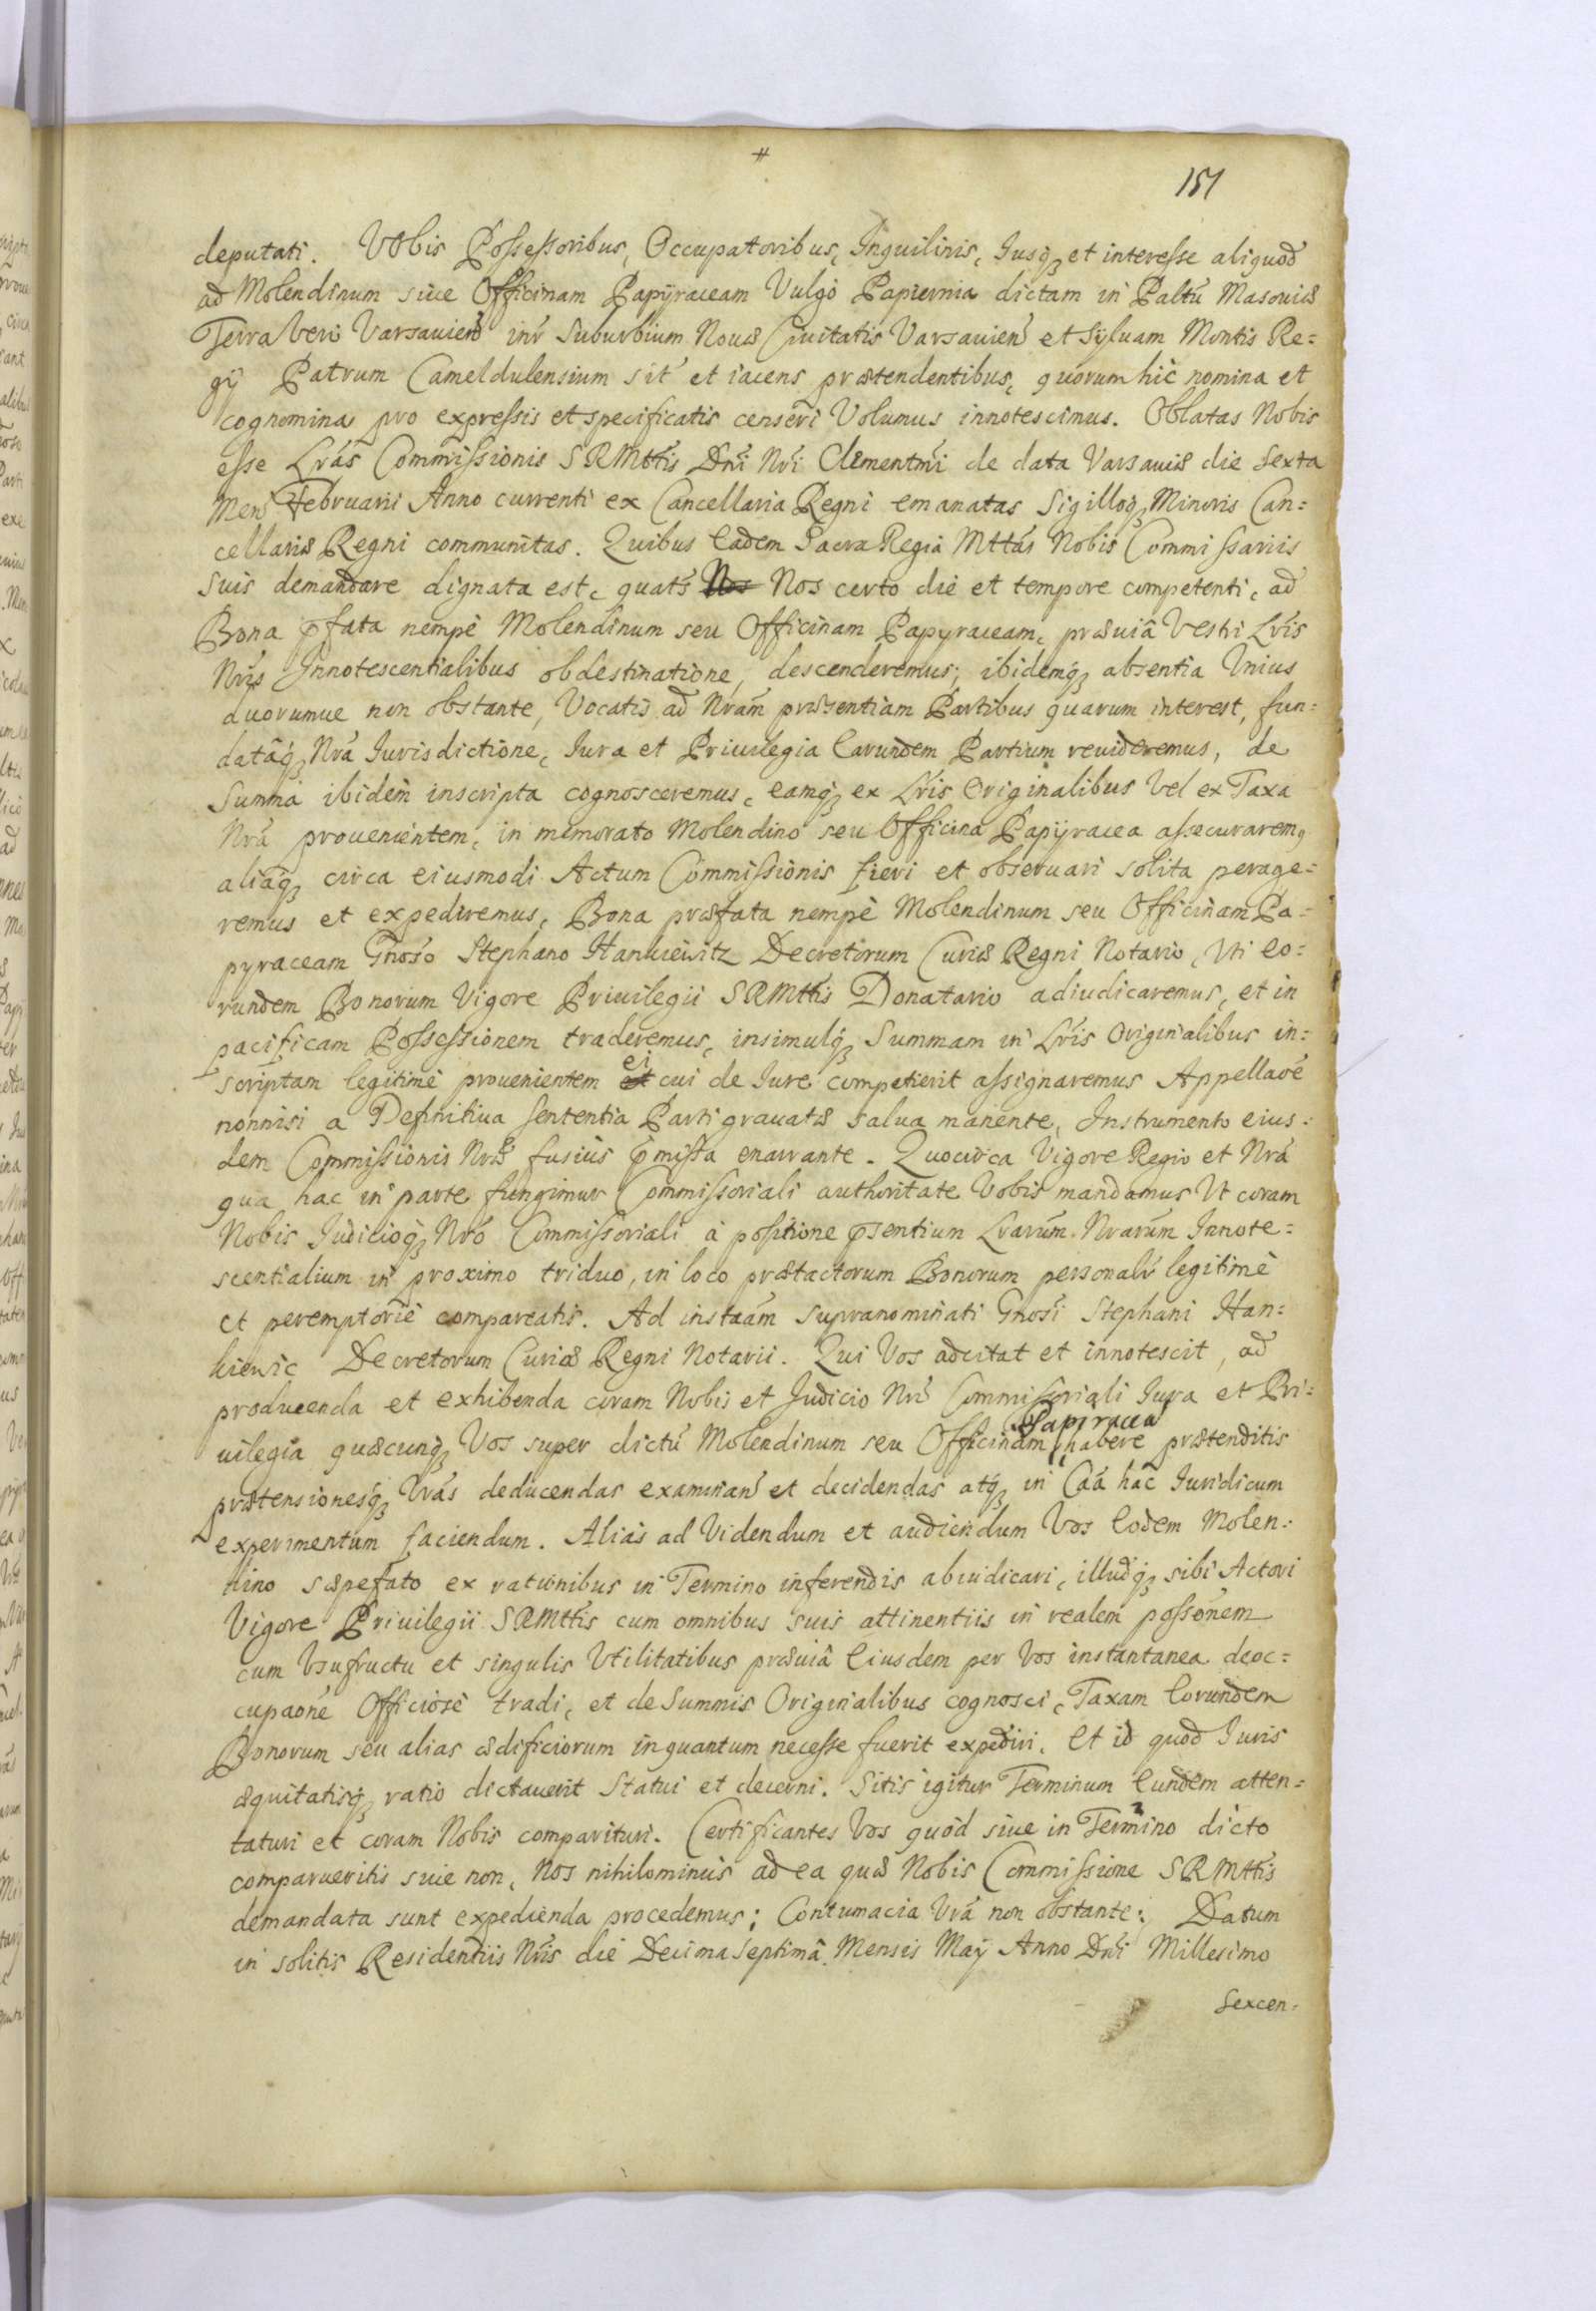 #
151
deputati. Vobis Possessoribus, Occupatoribus, Inquilinis, Iusq3 et interesse aliquod
ad Molendinum siue Officinam Papÿraceam Vulgò Papiernia dictam in Paltū Masouiæ
Terra Verò Varsauien̄ intr̄ Suburbium Nouæ Ciuitatis Varsauien̄ et Syluam Montis Re=
gÿ Patrum Cameldulensium sit̄ et iacens prætendentibus, quorum hic nomina et
cognomina pro expressis et specificatis censeri Volumus innotescimus. Oblatas Nobis
esse Lrās Commissionis SRMttīs Dnī Nrī Clementmī de data Varsauiæ die Sexta
Mens̄ Februarii Anno currenti ex Cancellaria Regni emanatas Sigilloq3 Minoris Can=
cellariæ Regni communitas. Quibus Eadem Sacra Regia Mttās Nobis Commissariis
Suis demandare dignata est, quats̄ Nos Nos certo die et tempore competenti, ad
Bona p̄fata nempè Molendinum seu Officinam Papyraceam, præuiâ Vestri Lrīs
Nrīs Innotescentialibus obdestinatione, descenderemus; ibidemq3 absentia Vnius
duorumue non obstante, Vocatis ad Nrām præsentiam Partibus quarum interest, fun=
datâq3 Nrā Iurisdictione, Iura et Priuilegia Earundem Partium reuideremus, de
Summa ibidem inscripta cognosceremus, eamq3 ex Lrīs Originalibus Vel ex Taxa
Nrā prouenientem, in memorato Molendino seu Officina Papÿracea assecuraremq
aliaq3 circa eiusmodi Actum Commissionis fieri et obseruari solita perage=
remus et expediremus, Bona præfata nempè Molendinum seu Officinam Pa=
pyraceam Gnōso Stephano Hankiewitz Decretorum Curiæ Regni Notario, Vti Eo=
rundem Bonorum Vigore Priuilegii SRMttīs Donatario adiudicaremus, et in
pacificam Possessionem traderemus, insimulq3 Summam in Lrīs Originalibus in=
scriptam legitimè prouenientem et ei cui de Iure competierit assignaremus Appellaōe
nonnisi a Definitiua sententia Parti grauatæ salua manente, Instrumento eius=
dem Commissionis Nrǣ fusiùs p̄missa enarrante. Quocirca Vigore Regio et Nrā
qua hac in parte fungimur Commissoriali authoritate Vobis mandamus Vt coram
Nobis Iudicioq3 Nrō Commissoriali à positione p̄sentium Lrarūm Nrarūm Innote=
scentialium in proximo triduo, in loco prætactorum Bonorum personalr̄ legitimè
et peremptoriè compareatis. Ad instaām supranominati Gnōsi Stephani Han=
kiewic Decretorum Curiæ Regni Notarii. Qui Vos adcitat et innotescit, ad
producenda et exhibenda coram Nobis et Iudicio Nrō Commissoriali Iura et Pri=
uilegia quæcunq3 Vos super dictū Molendinum seu Officinam Papiracea habere prætenditis
prætensionesq3 Vrās deducendas examinan̄ et decidendas atq3 in Caā hac Iuridicum
experimentum faciendum. Aliàs ad Videndum et audiendum Vos Eodem Molen=
dino sæpefato ex rationibus in Termino inferendis abiudicari, illudq3 sibi Actori
Vigore Priuilegii SRMttīs cum omnibus suis attinentiis in realem possōnem
cum Vsufructu et singulis Vtilitatibus præuiâ Eiusdem per Vos instantanea deoc=
cupaōne Officiosè tradi, et de Summis Originalibus cognosci, Taxam Eorundem
Bonorum seu alias ædificiorum inquantum necesse fuerit expediri, Et id quod Iuris
æquitatisq3 ratio dictauerit Statui et decerni. Sitis igitur Terminum Eundem atten=
taturi et coram Nobis comparituri. Certificantes Vos quòd siue in Termino dicto
comparueritis siue non, Nos nihilominùs ad ea quæ Nobis Commissione SRMttīs
demandata sunt expedienda procedemus; Contumacia Vrā non obstante; Datum
in solitis Residentiis Nrīs die Decima Septimâ Mensis Maÿ Anno Dnī Millesimo
Sexcen=